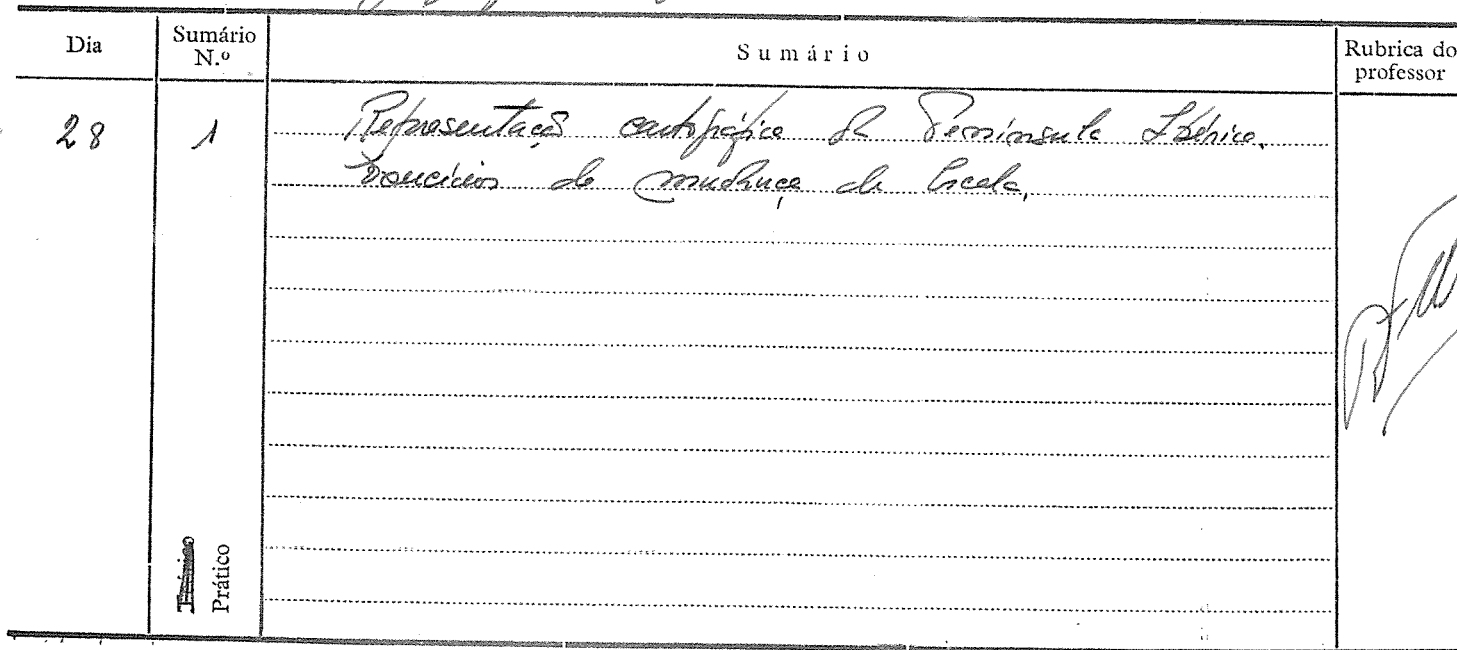 Dia
Sumário N.º
Sumário
Rubrica do professor
28
1
Representação cartográfica da Península Ibérica.
Exercícios de mudança de Escala.
Teórico
Prático